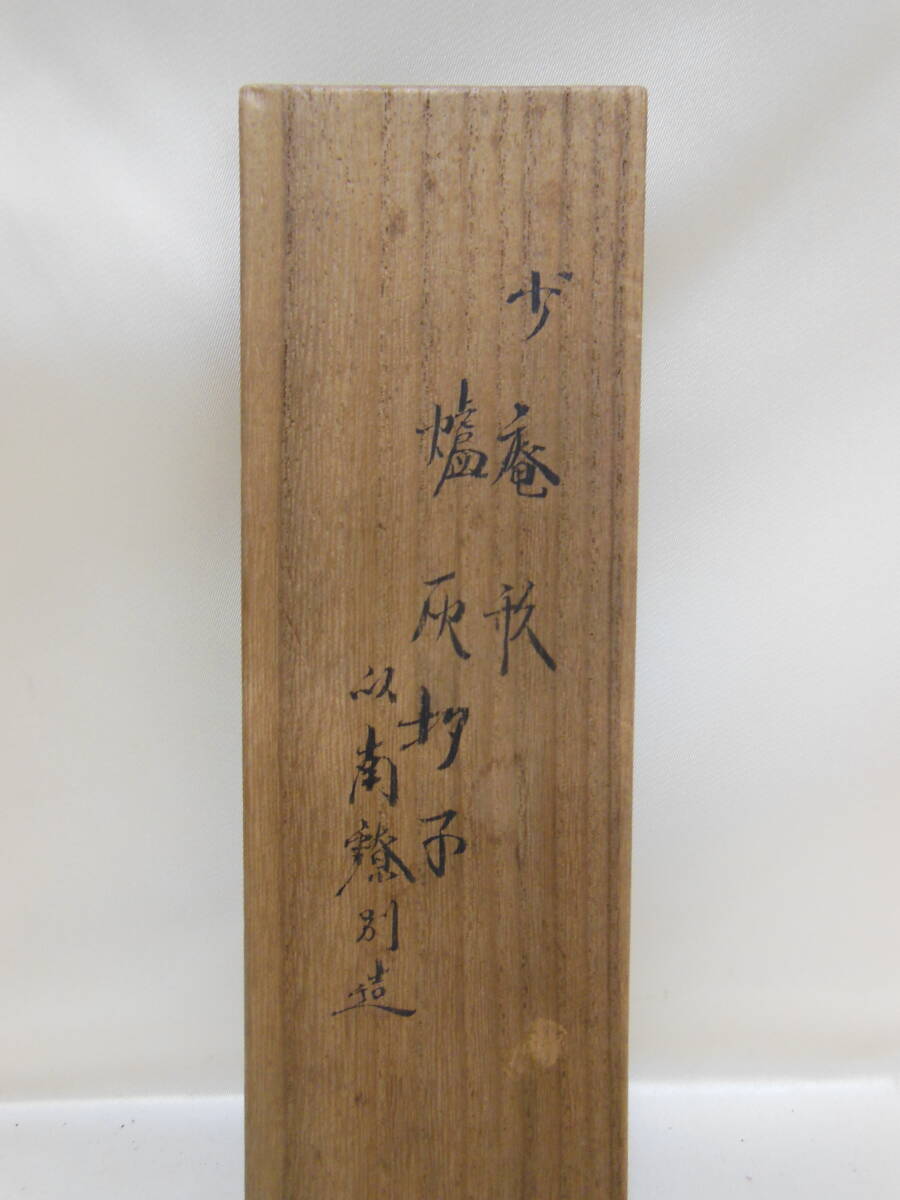 少庵形
爐灰杓子
以南鐐別造